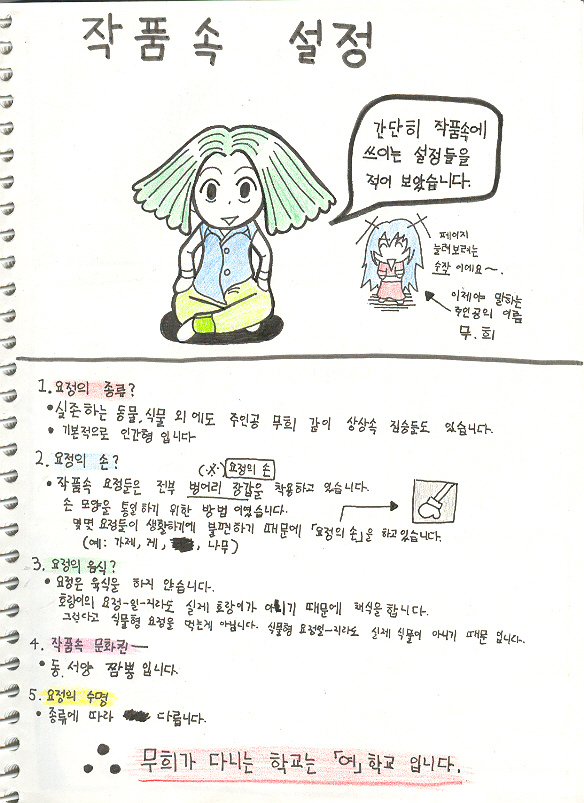 작품속 설정
간단히 작품속에
쓰이는 설정들을
적어 보았습니다.
페이지
늘려보려는
수작 이에요~.
이제야 말하는
주인공의 이름
무.희
1. 요정의 종류?
• 실존하는 동물,식물 외에도 주인공 무희 같이 상상속 짐승들도 있습니다.
• 기본적으로 인간형 입니다
2. 요정의 손?
요정의 손
• 작품속 요정들은 전부 벙어리 장갑을 착용하고 있습니다.
손 모양을 통일하기 위한 방법 이였습니다.
몇몇 요정들이 생활하기에 불편하기 때문에 「요정의 손」을 하고있습니다.
(예: 가제, 게, , 나무)
3. 요정의 음식?
• 요정은 육식을 하지 않습니다.
호랑이의 요정-일-지라도 실제 호랑이가 아니기 때문에 채식을 합니다.
그렇다고 식물형 요정을 먹는게 아닙니다. 식물형 요정일-지라도 실제 식물이 아니기 때문 입니다.
4. 작품속 문화권—
• 동.서양 짬뽕 입니다.
5. 요정의 수명
• 종류에 따라 다릅니다.
무희가 다니는 학교는 「예」학교 입니다.